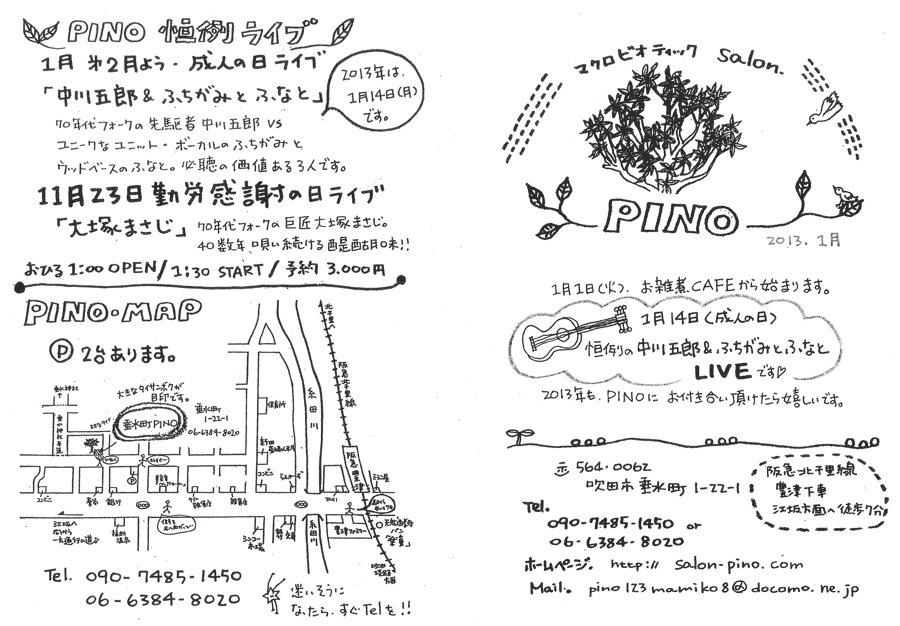 PINO 恒例ライブ
1月 第2月よう・成人の日ライブ
「中川五郎&ふちがみとふなと」
2013年は、
1月14日(月)
です。
70年代フォークの先駆者中川五郎 VS
ユニークなユニット・ボーカルのふちがみと
ウッドベースのふなと。必聴の価値ある3人です。
11月23日勤労感謝の日ライブ
「大塚まさじ」
70年代フォークの巨匠大塚まさじ。
40数年、唄い続ける醍醐味!!
おひる1:00 OPEN/1:30 START/予約 3.000円
PINO・MAP
P 2台あります。
大きなタイサンボクが
目印です。
垂水町PINO
垂水町
1-22-1
06-6384-8020
垂水神社
糸田川
阪急千里線
阪急豊津
コンビニ
銀行
江坂へ
糸田川
Tel. 090-7485-1450
06-6384-8020
迷いそうに
なったら、すぐTelを!!
マクロビオティック Salon.
PINO
2013.1月
1月1日(火)、お雑煮CAFEから始まります。
1月14日(成人の日)
恒例の中川五郎&ふちがみとふなと
LIVEです♡
2013年も、PINOにお付き合い頂けたら嬉しいです。
〒564.0062
吹田市垂水町1-22-1
Tel.
090-7485-1450 or
06-6384-8020
阪急北千里線
豊津下車
江坂方面へ徒歩7分
ホームページ。 http:// salon-pino.com
Mail. pino123mamiko8@docomo.ne.jp